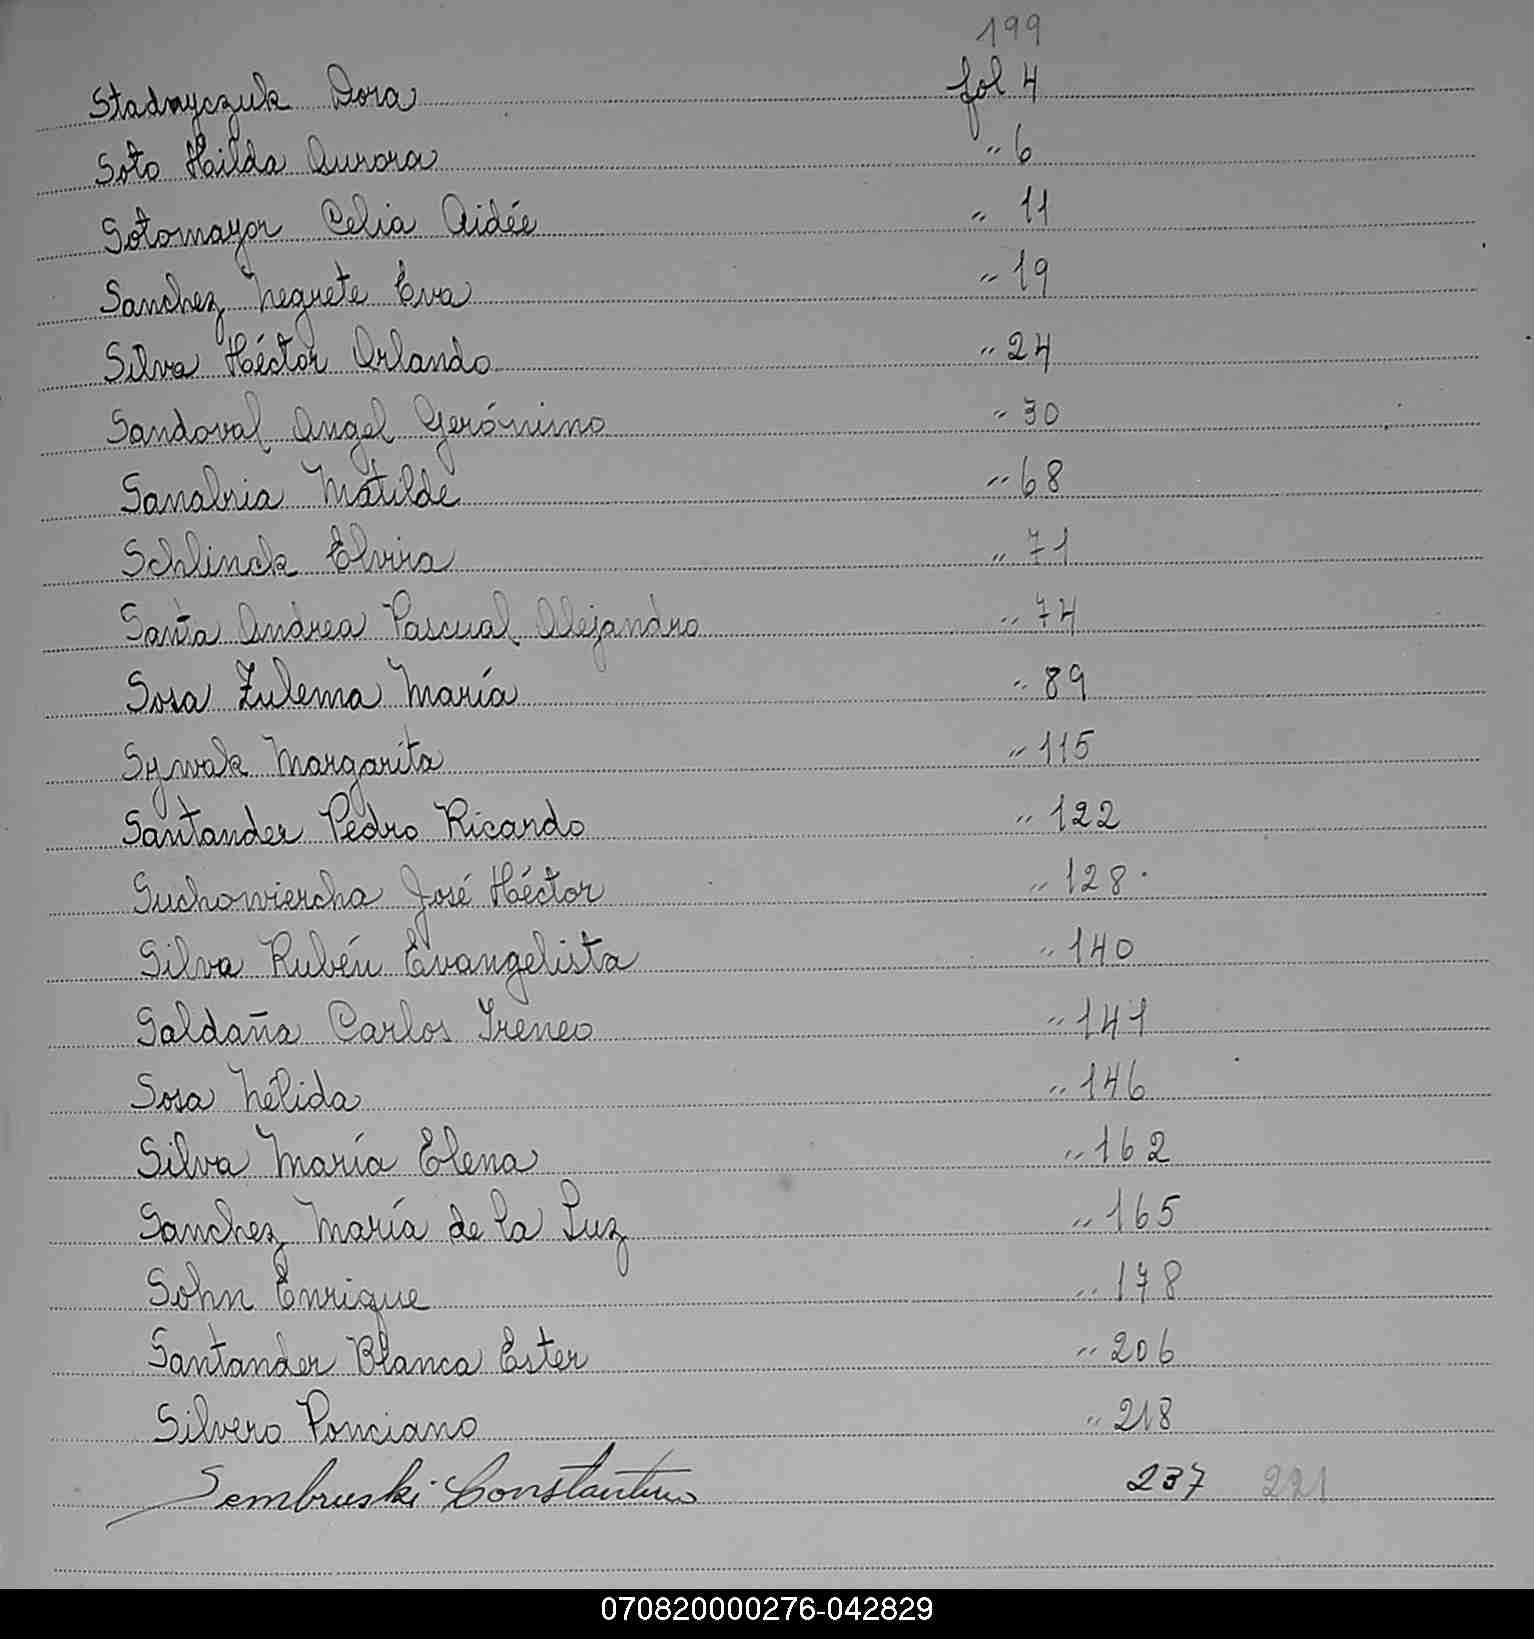 199
Stadnyczuk Dora fol 4
Soto Hilda Aurora " 6
Sotomayor Celia Aidée " 11
Sanchez Negrete Eva " 19
Silva Héctor Orlando " 24
Sandoval Angel Gerónimo " 30
Sanabria Matilde " 68
Schlinck Elvira " 71
Santa Andrea Pascual Alejandro " 74
Sosa Zulema María " 89
Sywak Margarita " 115
Santander Pedro Ricardo " 122
Suchowiercha José Héctor " 128
Silva Rubén Evangelista " 140
Saldaña Carlos Ireneo " 141
Sosa Nélida " 146
Silva María Elena " 162
Sanchez María de la Luz " 165
Sohn Enrique " 178
Santander Blanca Ester " 206
Silvero Ponciano " 218
Sembruski Constantino 237 221
070820000276-042829